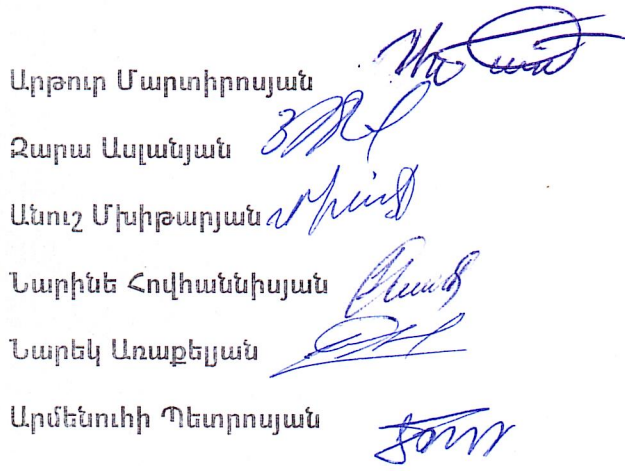 Արթուր Մարտիրոսյան
Զարա Ասլանյան
Անուշ Մխիթարյան
Նարինե Հովհաննիսյան
Նարեկ Առաքելյան
Արմենուհի Պետրոսյան